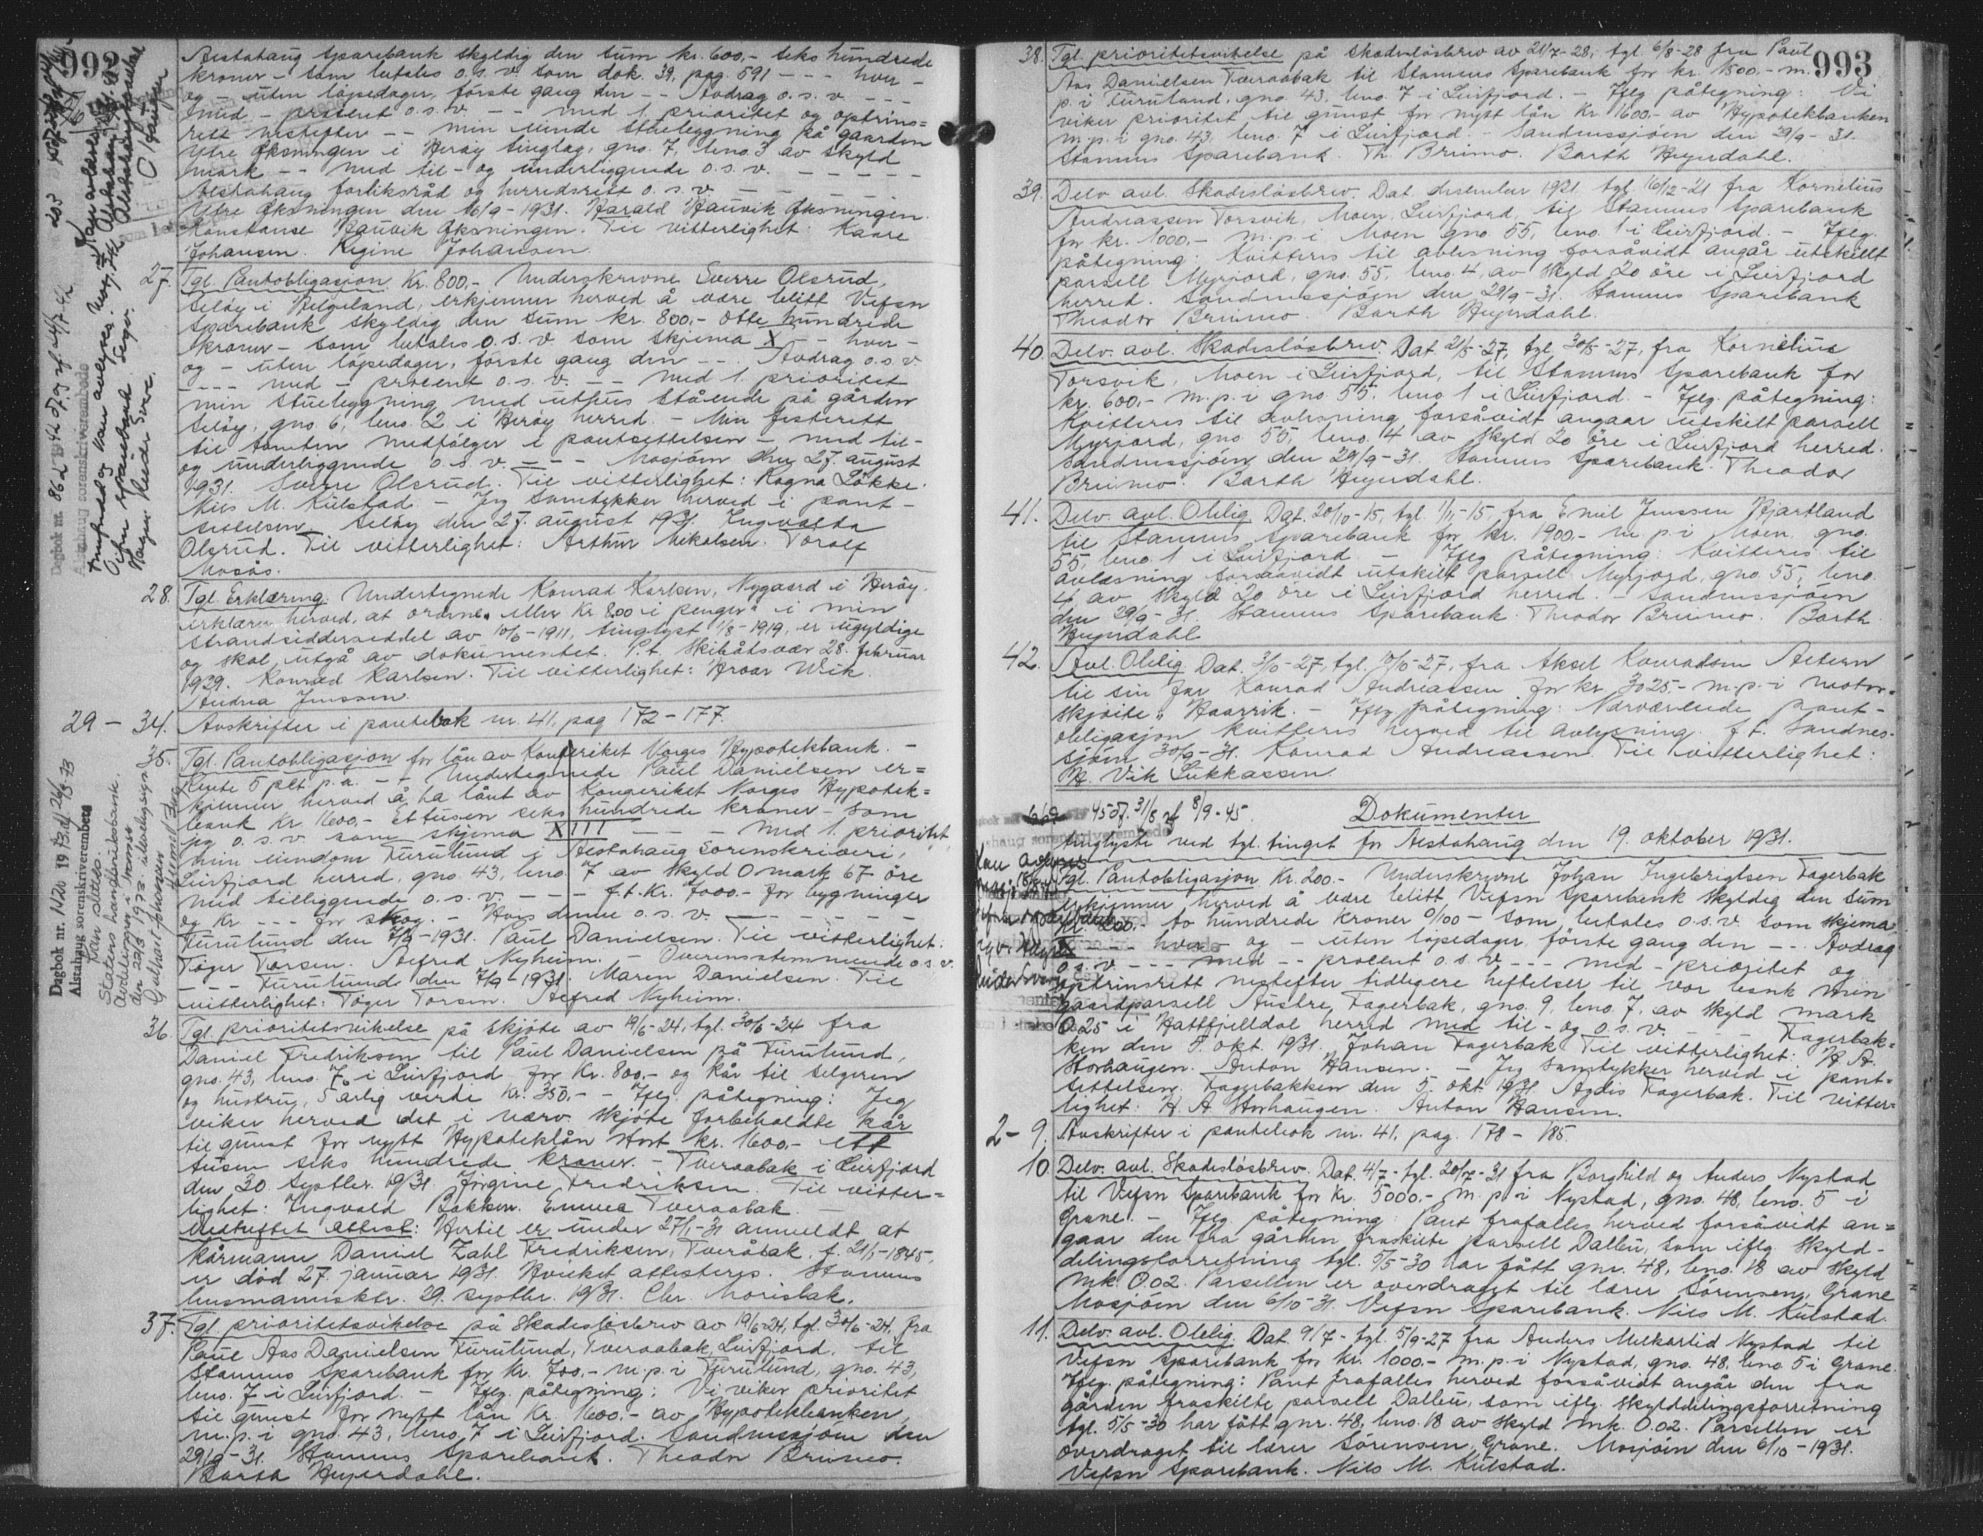 992
Alstahaug Sparebank skyldig den sum kr. 600,- seks hundrede
kroner - som betales o.s.v. som dok. 39, pag. 591 - - - hver -
og - uten løpedager, første gang den - - Avdrag o.s.v. - - -
med - prosent o.s.v. - - med 1 prioritet og optrins=
rett nestefter - - min eiende stuebygning på gaarden
Ytre Øksningen i Herøy tinglag, gno. 7, bno. 3 av skyld
mark - - med til- og underliggende o.s.v. - - - - -
Alstahaug forliksråd og herredsrett o.s.v. - - -
Ytre Øksningen den 16/9-1931. Harald Hauvik Øksningen.
Konstanse Hauvik Øksningen. Til vitterlighet: Kaare
Johansen. Regine Johansen
27. Tgl. Pantobligasjon Kr. 800,- Underskrevne Sverre Olsrud,
Seløy i Helgeland, erkjenner herved å være blitt Vefsn
Sparebank skyldig den sum kr. 800,- otte hundrede
kroner - som betales o.s.v. som skjema X - - hver -
og - uten løpedager, første gang den - - . Avdrag o.s.v.
- - - - med - procent o.s.v. - - med 1. prioritet
min stuebygning med uthus stående på gården
Seløy, gno. 6, bno. 2 i Herøy herred. - Min festerett
til tomten medfølger i pantsettelsen - med til-
og underliggende o.s.v. - - - Mosjøen den 27. august
1931. Sverre Olsrud. Til vitterlighet: Ragna Løkke.
Nils M. Kulstad. - Jeg samtykker herved i pant-
settelsen. Seløy den 27. august 1931. Ingvalda
Olsrud. Til vitterlighet: Arthur Mekalsen. Torolf
Mosås.
28. Tgl. Erklæring. Undertegnede Konrad Karlsen, Nygaard i Herøy
erklærer herved, at ordene "eller kr. 800 i penger" i min
strandsidderseddel av 10/6-1911, tinglyst 1/8-1919, er ugyldige
og skal utgå av dokumentet. P.t. Skibåtsvær 28. februar
1929. Konrad Karlsen. Til vitterlighet: Hroar Wik.
Andrea Jenssen.
29 - 34. Avskrifter i pantebok nr. 41, pag 172 - 177.
35. Tgl. Pantobligasjon for lån av Kongeriket Norges Hypotekbank. -
Rente 5 pct. p.a. - - Undertegnede Paul Danielsen er=
kjenner herved å ha lånt av Kongeriket Norges Hypotek=
bank kr. 1600,- ettusen seks hundrede kroner - som
jeg o.s.v. som skjema XIII - - - - med 1. prioritet
min eiendom Furulund i Alstahaug sorenskriveri,
Leirfjord herred, gno. 43, bno. 7 av skyld 0 mark 67 øre
med tilliggende o.s.v. - - - f.t. kr. 7000.- for bygninger
og kr. - - for skog. - Hvis denne o.s.v. - - - - -
Furulund den 7/9-1931. Paul Danielsen. Til vitterlighet:
Tøger Torsen. Alfred Nyheim. - Overensstemmende o.s.v.
- - - Furulund den 7/9-1931. Maren Danielsen. Til
vitterlighet: Tøger Torsen. Alfred Nyheim.
36. Tgl. prioritetsvikelse på skjøte av 19/6-24, tgl. 30/6-24 fra
Daniel Fredriksen til Paul Danielsen på Furulund,
gno. 43, bno. 7 i Leirfjord for kr. 800,- og kår til selgeren
og hustru, 5 årlig verdi kr. 350,- - Iflg. påtegning: Jeg
viker herved det i nærv. skjøte forbeholdte kår
til gunst for nytt Hypoteklån stort kr. 1600,- ett
tusen seks hundrede kroner. - Tveraabak i Leirfjord
den 20. septbr. 1931. Jørgine Fredriksen. Til vitter=
lighet: Ingvald Bakken. Emma Tveraabak. -
Vedheftet attest: Hertil er under 27/1-31 anmeldt at
kårmann Daniel Zahl Fredriksen, Tveråbak, f. 21/5-1845,
er død 27. januar 1931. Hvilket attesteres. Stamnes
lensmannsktr. 29. septbr. 1931. Chr. Morisbak.
37. Tgl. prioritetsvikelse på Skadesløsbrev av 19/6-24, tgl. 30/6-24, fra
Paul Aas Danielsen Furulund, Tveraabak, Leirfjord, til
Stamnes Sparebank for kr. 700,- m.p. i Furulund, gno. 43,
bno. 7 i Leirfjord. - Iflg. påtegning: Vi viker prioritet
til gunst for nytt lån kr. 1600.- av Hypotekbanken
m.p. i gno. 43, bno. 7 i Leirfjord. Sandnessjøen den
29/9-31. Stamnes Sparebank. Theodor Brunvo.
Barth Heyerdahl.
Dagbok nr. 862 1942
Alstahaug sorenskriverembede
Dagbok nr. 1120 1973
Alstahaug sorenskriverembede
Kan slettes.
Statens håndverksbank
993
38. Tgl. prioritetsvikelse på skadesløsbrev av 21/7-28, tgl. 6/8-28 fra Paul
Aas Danielsen Tveraabak til Stamnes Sparebank for kr. 1500.- m.
p. i Furulund, gno. 43, bno. 7 i Leirfjord. - Iflg. påtegning: Vi
viker prioritet til gunst for nytt lån kr. 1600.- av Hypotekbanken
m.p. i gno. 43, bno. 7 i Leirfjord. - Sandnessjøen den 29/9-31.
Stamnes Sparebank. Th. Brunvo. Barth Heyerdahl.
39. Delv. avl. Skadesløsbrev. Dat. desember 1921, tgl. 16/12-21 fra Kornelius
Andreassen Torsvik, Moen, Leirfjord, til Stamnes Sparebank
for kr. 1000,- m.p. i Moen gno. 55, bno. 1 i Leirfjord. - Iflg.
påtegning: Kvitteres til avlesning forsåvidt angår utskilt
parsell Myrjord, gno. 55, bno. 4, av skyld 20 øre i Leirfjord
herred. Sandnessjøen den 29/9-31. Stamnes Sparebank
Theodor Brunvo. Barth Heyerdahl.
40. Delv. avl. Skadesløsbrev. Dat. 21/5-27, tgl. 30/5-27, fra Kornelius
Torsvik, Moen i Leirfjord, til Stamnes Sparebank for
kr. 600,- m.p. i gno. 55, bno. 1 i Leirfjord. - Iflg. påtegning:
Kvitteres til avlesning forsåvidt angaar utskilt parsell
Myrjord, gno. 55, bno. 4 av skyld 20 øre i Leirfjord herred.
Sandnessjøen den 29/9-31. Stamnes Sparebank. Theodor
Brunvo. Barth Heyerdahl.
41. Delv. avl. Oblig. Dat. 20/10-15, tgl. 1/11-15, fra Emil Jenssen Hjartland
til Stamnes Sparebank for kr. 1900,- m.p. i Moen gno.
55, bno. 1 i Leirfjord. - Iflg. påtegning: Kvitteres til
avlesning forsaavidt utskilt parsell Myrjord, gno. 55, bno.
4 av skyld 20 øre i Leirfjord herred. - Sandnessjøen
den 29/9-31. Stamnes Sparebank. Theodor Brunvo. Barth
Heyerdahl
42. Avl. Oblig. Dat. 3/6-27, tgl. 10/6-27, fra Aksel Konradsen
til sin far Konrad Andreassen for kr. 3025.- m.p. i motor-
skjøite "Haarrik. - Iflg. påtegning: Nærværende pant-
obligasjon kvitteres herved til avlysning. f.t. Sandnes-
sjøen 30/9-31. Konrad Andreassen. Til vitterlighet:
H. Vik Lukkassen.
Dokumenter
tinglyste ved tgl. tinget for Alstahaug den 19. oktober 1931.
Tgl. Pantobligasjon Kr. 200.- Underskrevne Johan Ingebrigtsen Fagerbak
erkjenner herved å være blitt Vefsn Sparebank skyldig den sum
kr. 200.- to hundrede kroner 0/100 - som betales o.s.v. som skjema
X - - hver - og - uten løpedager første gang den - - . Avdrag
o.s.v. - - - med - - procent o.s.v. - - - med - prioritet og
optrinsrett nestefter tidligere heftelser til vor bank min
gaardparsell Austre Fagerbak, gno. 9, bno. 7, av skyld mark
0.25 i Hattfjelldal herred med til- og o.s.v. - - - Fagerbak=
ken den 5. okt. 1931. Johan Fagerbak. Til vitterlighet: H. A.
Storhaugen. Anton Hansen. - Jeg samtykker herved i pant-
settelsen. Fagerbakken den 5. okt. 1931. Agdis Fagerbak. Til vitter=
lighet: H. A. Storhaugen. Anton Hansen.
2 - 9. Avskrifter i pantebok nr. 41, pag. 178 - 185.
10. Delv. avl. Skadesløsbrev. Dat. 4/7 - tgl. 20/7-31 fra Borghild og Anders Nystad
til Vefsn Sparebank for kr. 5000.- m.p. i Nystad, gno. 48, bno. 5 i
Grane. - Iflg. påtegning: Pant frafalles herved forsåvidt an=
gaar den fra gården fraskilte parsell Dallen, som iflg. skyld-
delingsforretning tgl. 5/5-30 har fått gnr. 48, bno. 18 av skyld
mk. 0.02. Parsellen er overdraget til lærer Sørensen, Grane
Mosjøen den 6/10-31. Vefsn Sparebank. Nils M. Kulstad.
11. Delv. avl. Oblig. Dat. 9/7 - tgl. 5/9-27 fra Anders Nystad til
Vefsn Sparebank for kr. 1000.- m.p. i Nystad, gno. 48, bno. 5 i Grane.
Iflg. påtegning: Pant frafalles herved forsåvidt angår den fra
gården fraskilte parsell Dallen, som iflg. skylddelingsforretning
tgl. 5/5-30 har fått gnr. 48, bno. 18 av skyld mk. 0.02. Parsellen er
overdraget til lærer Sørensen, Grane. Mosjøen den 6/10-1931.
Vefsn Sparebank. Nils M. Kulstad.